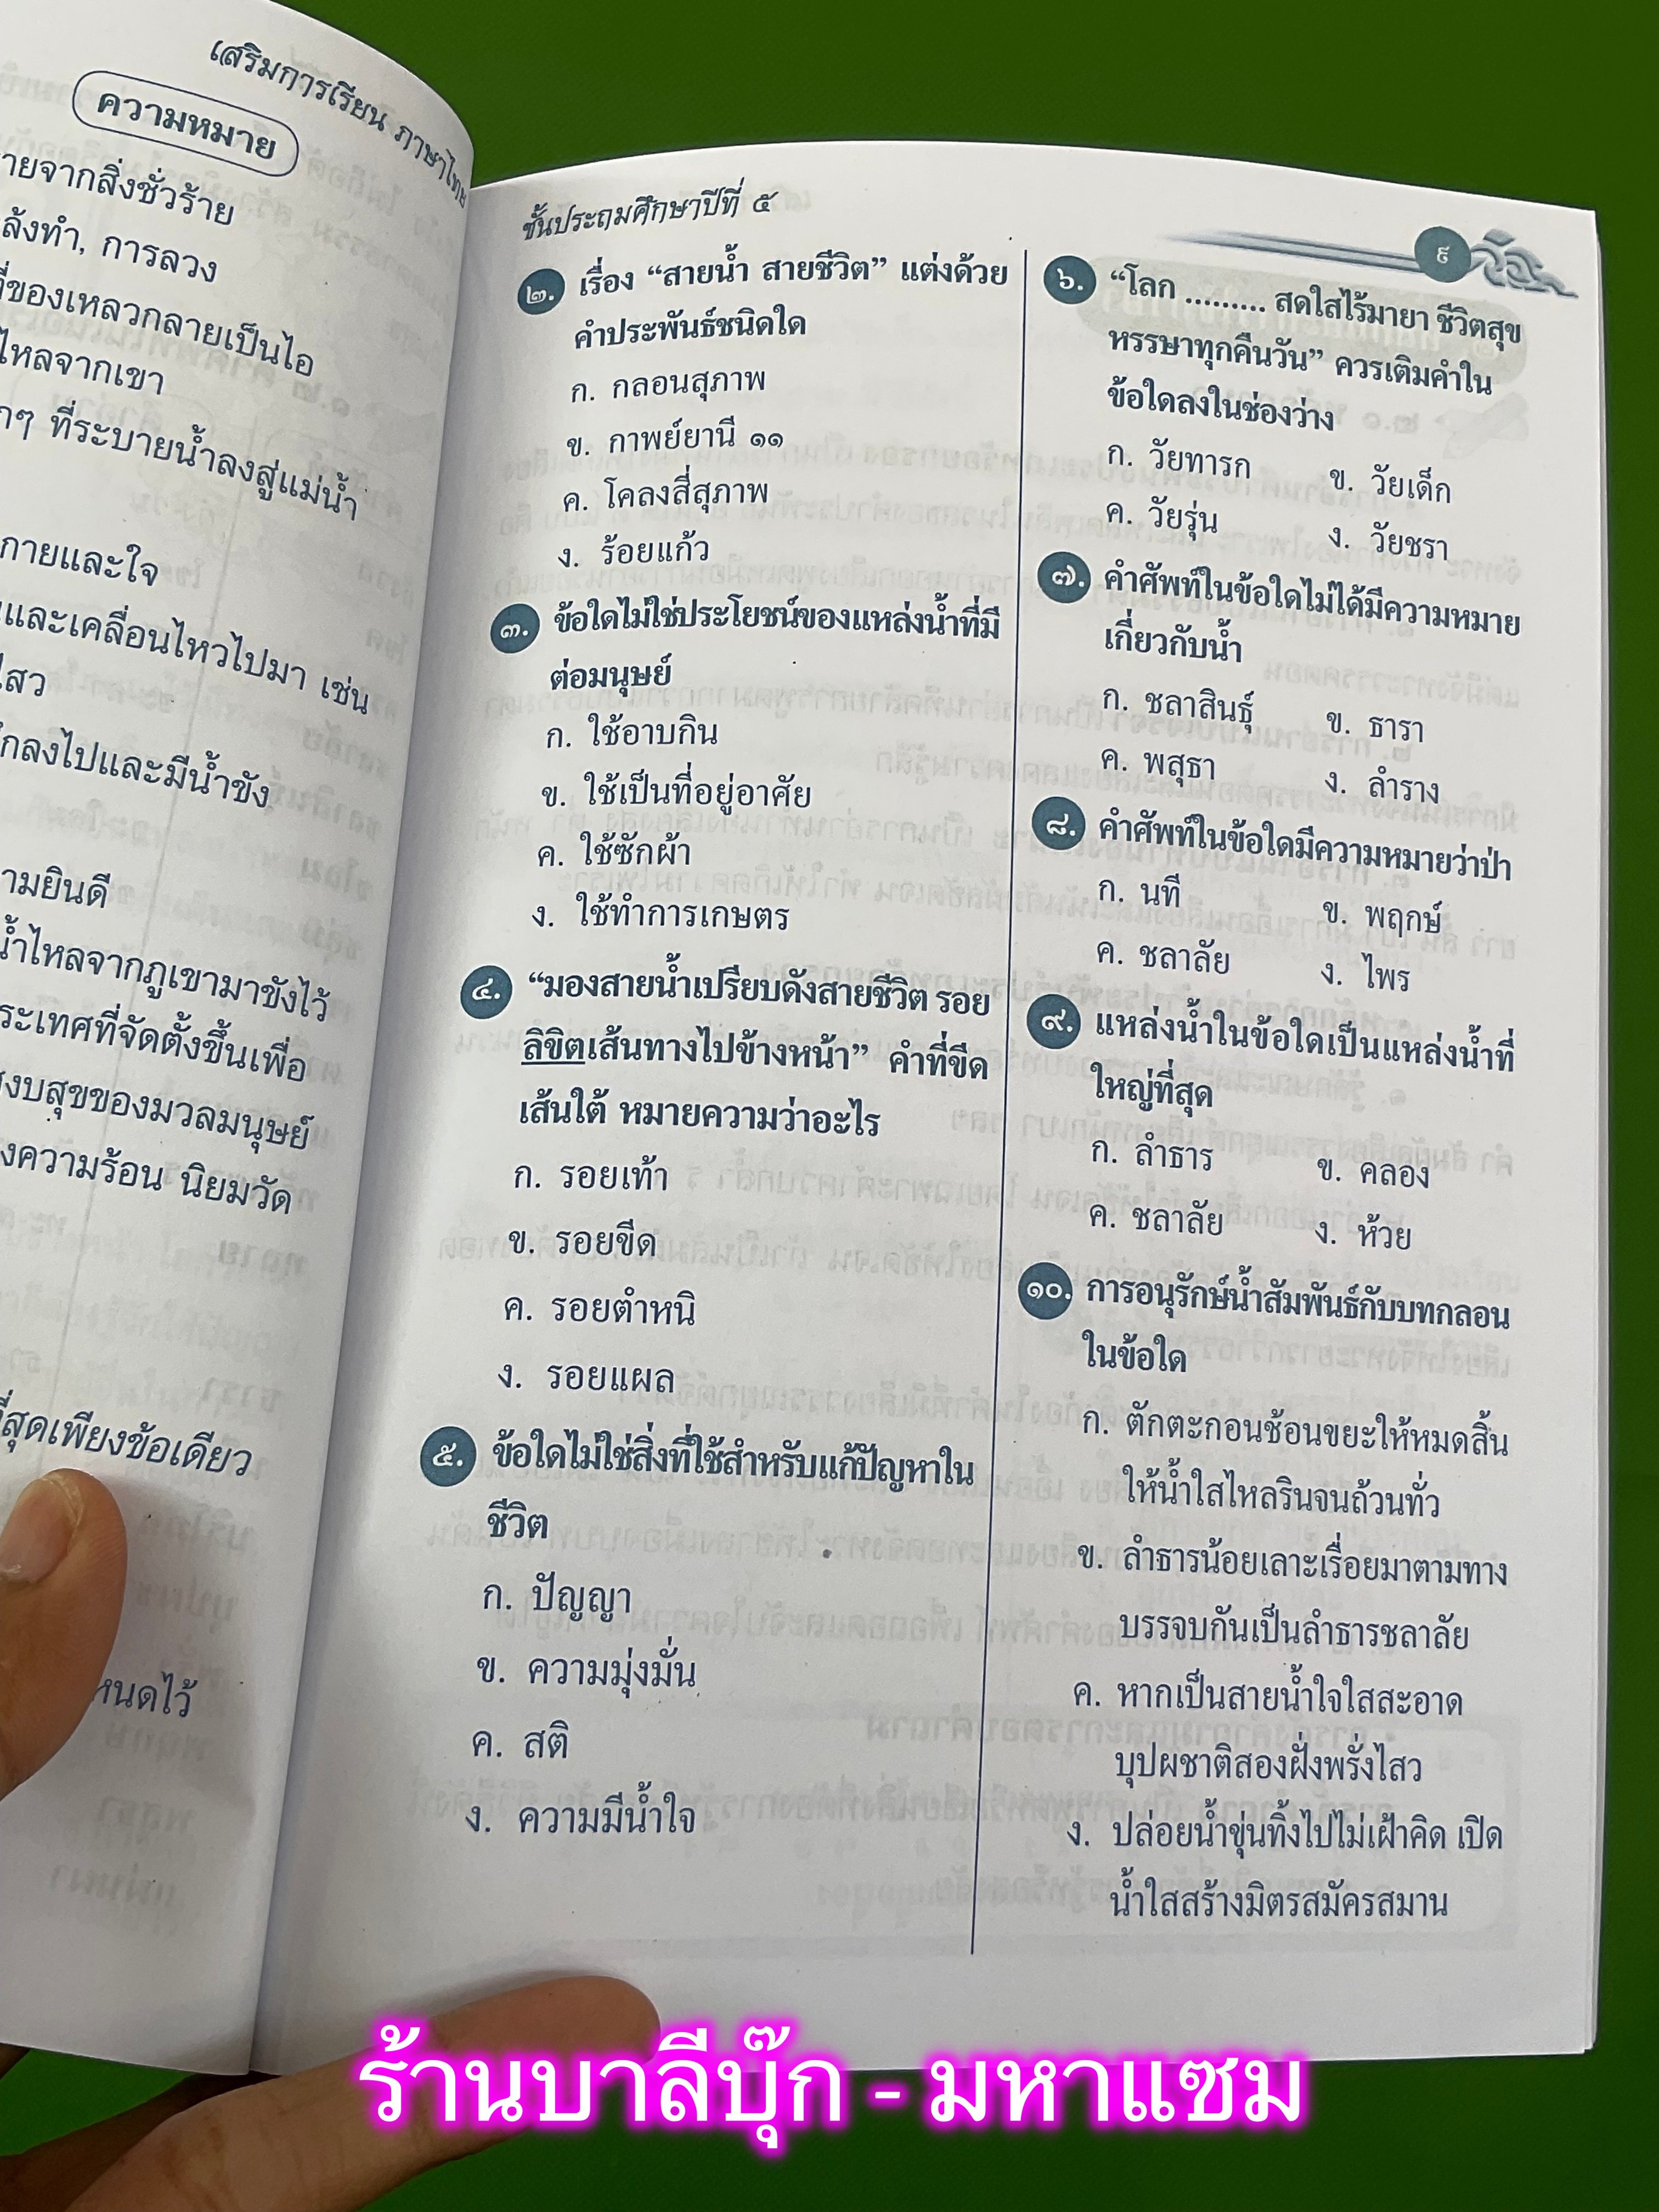 เสริมการเรียน ภาษาไทย
ความหมาย
จากสิ่งชั่วร้าย
การลวง
ของเหลวกลายเป็นไอ
ไหลจากเขา
ที่ระบายน้ำลงสู่แม่น้ำ
กายและใจ
และเคลื่อนไหวไปมา เช่น
ลงไปและมีน้ำขัง
น้ำไหลจากภูเขามาขังไว้
ที่จัดตั้งขึ้นเพื่อ
ของมวลมนุษย์
ความร้อน นิยมวัด
เพียงข้อเดียว
ชั้นประถมศึกษาปีที่ ๕
๒. เรื่อง “สายน้ำ สายชีวิต” แต่งด้วย
คำประพันธ์ชนิดใด
ก. กลอนสุภาพ
ข. กาพย์ยานี ๑๑
ค. โคลงสี่สุภาพ
ง. ร้อยแก้ว
๓. ข้อใดไม่ใช่ประโยชน์ของแหล่งน้ำที่มี
ต่อมนุษย์
ก. ใช้อาบกิน
ข. ใช้เป็นที่อยู่อาศัย
ค. ใช้ซักผ้า
ง. ใช้ทำการเกษตร
๔. “มองสายน้ำเปรียบดังสายชีวิต รอย
ลิขิตเส้นทางไปข้างหน้า” คำที่ขีด
เส้นใต้ หมายความว่าอะไร
ก. รอยเท้า
ข. รอยขีด
ค. รอยตำหนิ
ง. รอยแผล
๕. ข้อใดไม่ใช่สิ่งที่ใช้สำหรับแก้ปัญหาใน
ชีวิต
ก. ปัญญา
ข. ความมุ่งมั่น
ค. สติ
ง. ความมีน้ำใจ
๙
๖. “โลก ......... สดใสไร้มายา ชีวิตสุข
หรรษาทุกคืนวัน” ควรเติมคำใน
ข้อใดลงในช่องว่าง
ก. วัยทารก ข. วัยเด็ก
ค. วัยรุ่น ง. วัยชรา
๗. คำศัพท์ในข้อใดไม่ได้มีความหมาย
เกี่ยวกับน้ำ
ก. ชลาสินธุ์ ข. ธารา
ค. พสุธา ง. ลำราง
๘. คำศัพท์ในข้อใดมีความหมายว่าป่า
ก. นที ข. พฤกษ์
ค. ชลาลัย ง. ไพร
๙. แหล่งน้ำในข้อใดเป็นแหล่งน้ำที่
ใหญ่ที่สุด
ก. ลำธาร ข. คลอง
ค. ชลาลัย ง. ห้วย
๑๐. การอนุรักษ์น้ำสัมพันธ์กับบทกลอน
ในข้อใด
ก. ตักตะกอนช้อนขยะให้หมดสิ้น
ให้น้ำใสไหลรินจนถ้วนทั่ว
ข. ลำธารน้อยเลาะเรื่อยมาตามทาง
บรรจบกันเป็นลำธารชลาลัย
ค. หากเป็นสายน้ำใจใสสะอาด
บุปผชาติสองฝั่งพรั่งไสว
ง. ปล่อยน้ำขุ่นทิ้งไปไม่เฝ้าคิด เปิด
น้ำใสสร้างมิตรสมัครสมาน
ร้านบาลีบุ๊ก - มหาแซม